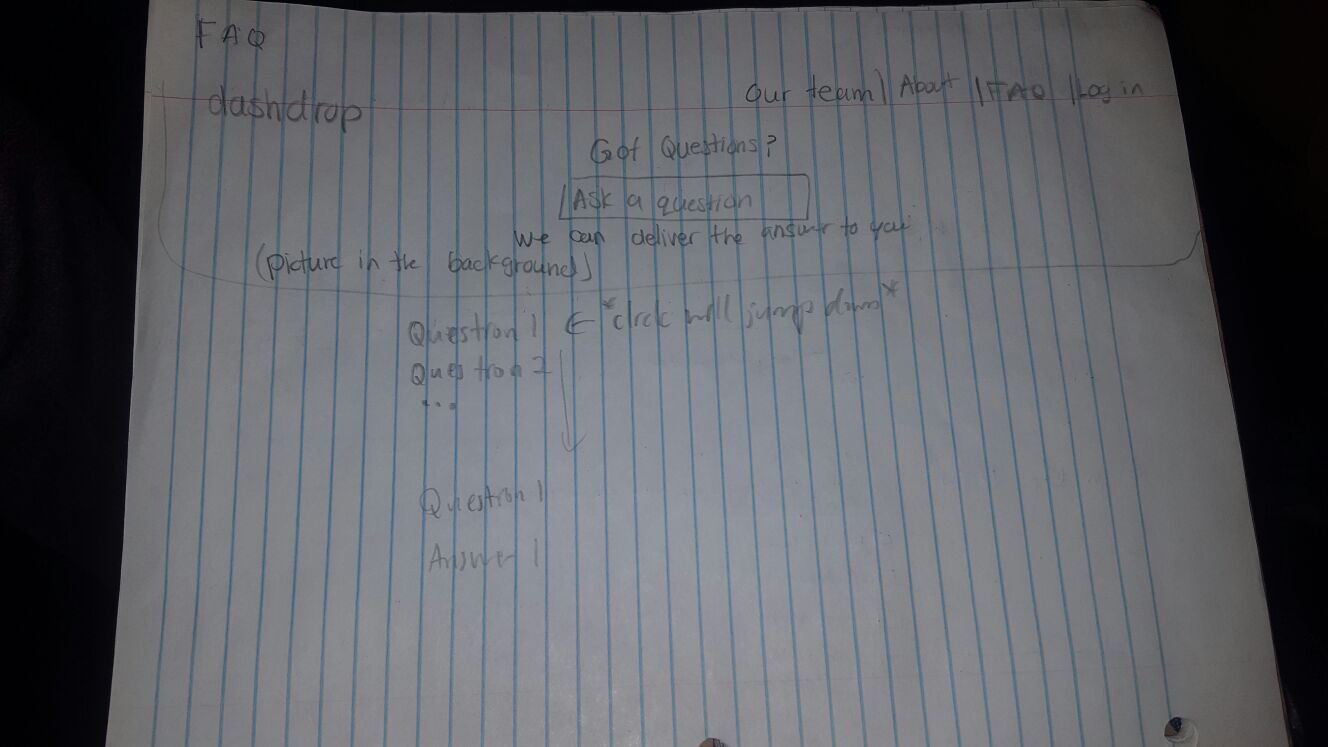 FAQ
dashdrop
Our team | About | FAQ | Log in
Got Questions?
Ask a question
We can deliver the answer to you
(picture in the background)
Question 1 ← *click will jump down*
Question 2
...
Question 1
Answer 1